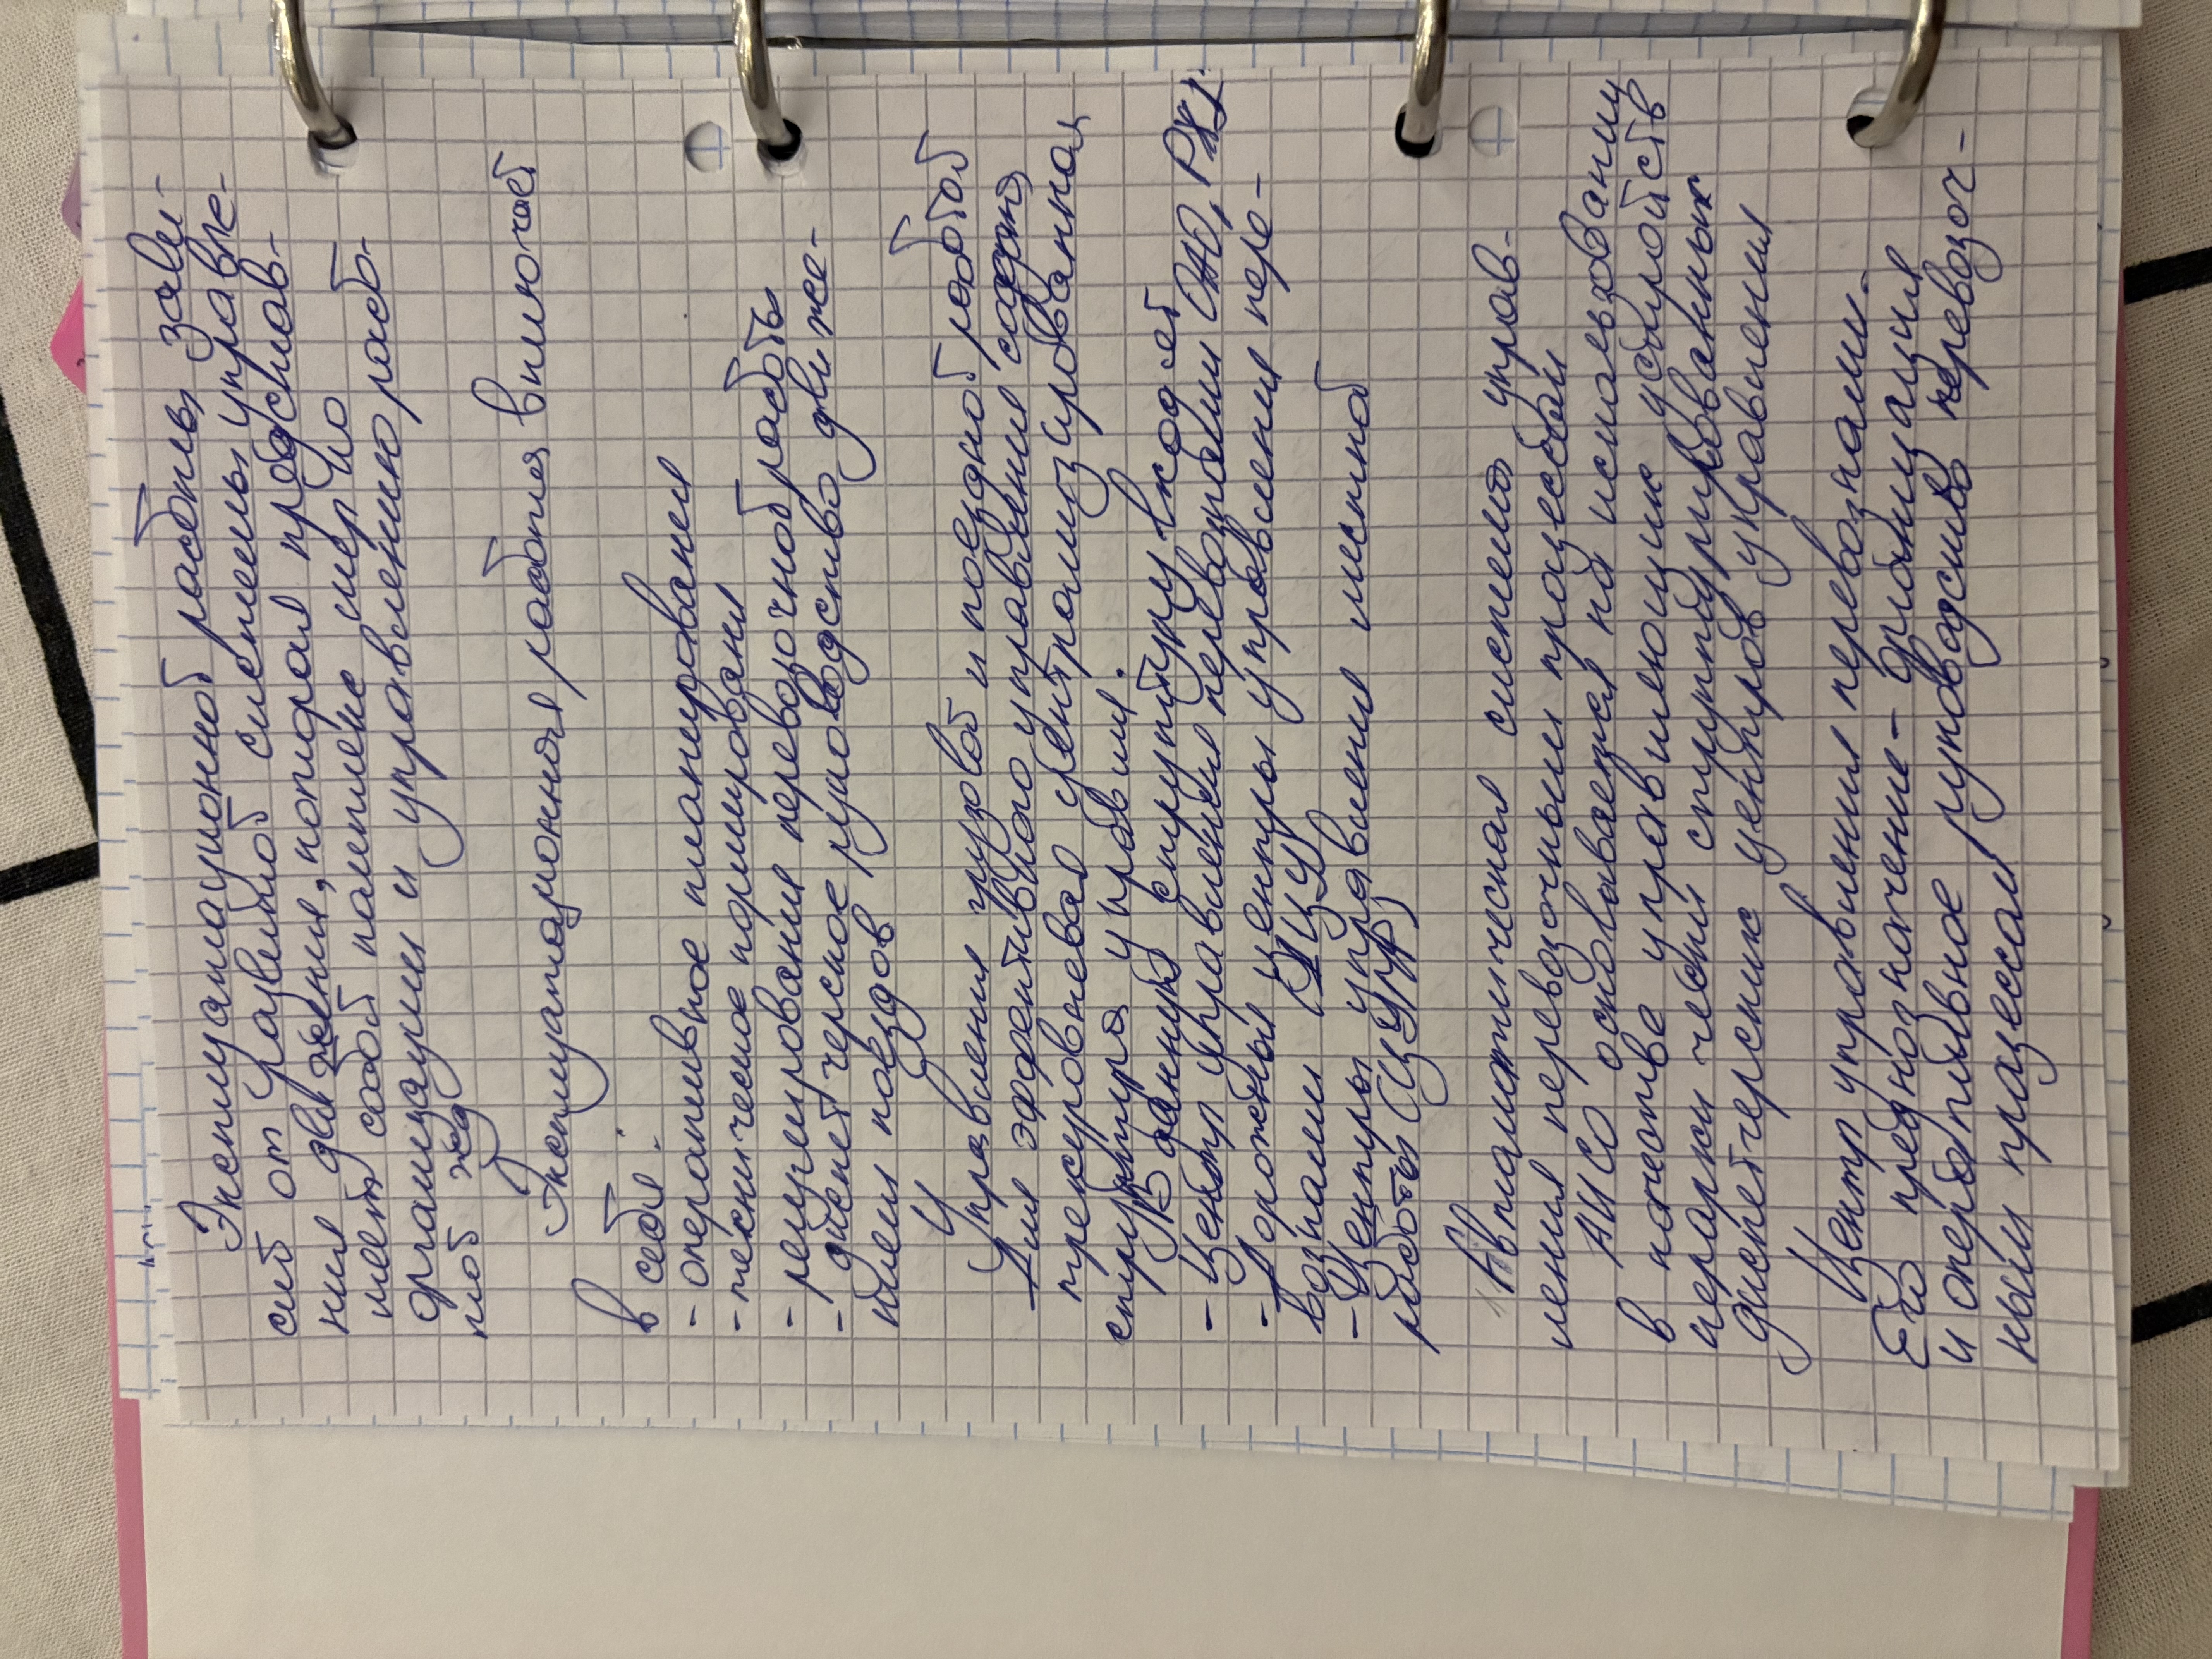 Эксплуатационной работы зави-
сит от разветной системы управле-
ния движения, которая представ-
ляет собой комплекс мер по
организации и управлению работ-
той жд
Эксплуатационная работа включает
в себя:
- оперативное планирование
- техническое нормирование
- регулирование перевозочной работы
- диспетчерское руководство движе-
нием поездов
Управления грузовой и поездной работой
Для эффективного управления сформ
трехуровневая централизированная
структура управлен.
В данную структуру входят
- Центр управления перевозками ОАО РЖД
- Дорожный центры управления пере-
возками (ДЦУ)
- Центры управления местной
работы (ЦУМР)
Автоматическая система управ-
ления перевозочным процессом
АИСО основывается на использовании
в качестве управляющих устройств
иерархический структурированных
диспетчерских центров управления
Центр управления перевозками.
Его предназначение - организация
и оперативное руководство перевозоч-
ным процессом